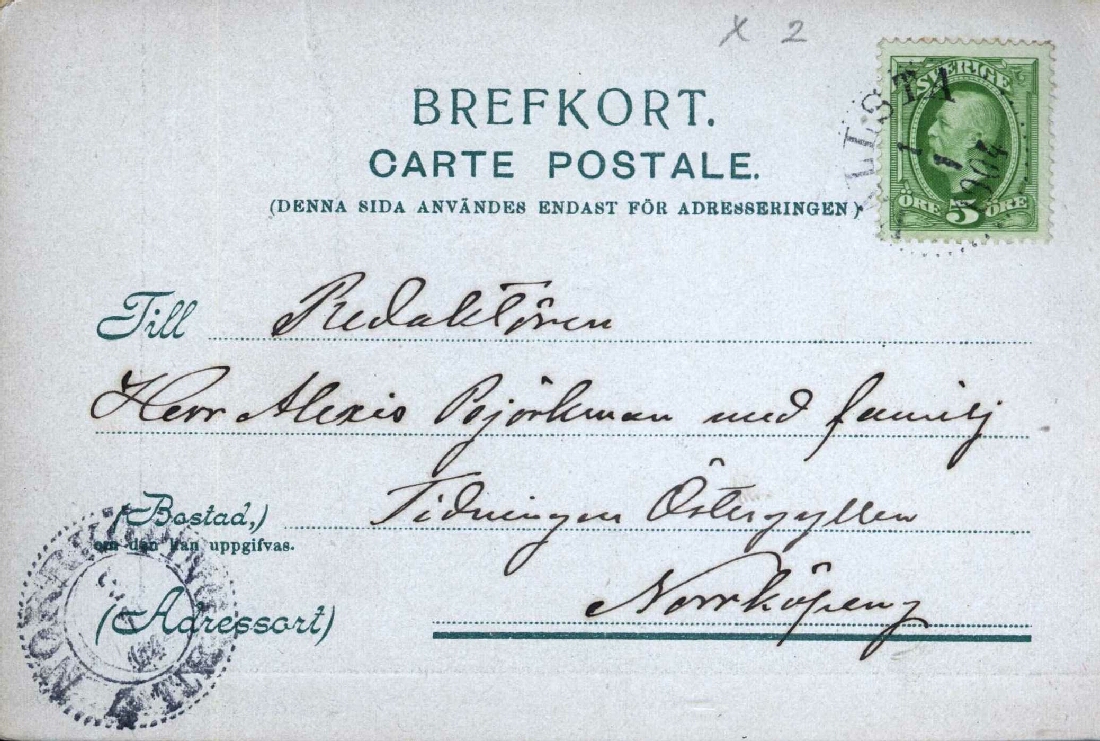 x 2
BREFKORT.
CARTE POSTALE.
(DENNA SIDA ANVÄNDES ENDAST FÖR ADRESSERINGEN)
SVERIGE
ÖRE 5 ÖRE
LLSTA
1 1 1904
Till Redaktören
Herr Alexis Björkman med familj
(Bostad,) Tidningen Östergyllen
om den kan uppgifvas.
(Adressort) Norrköping
NORRKÖPING